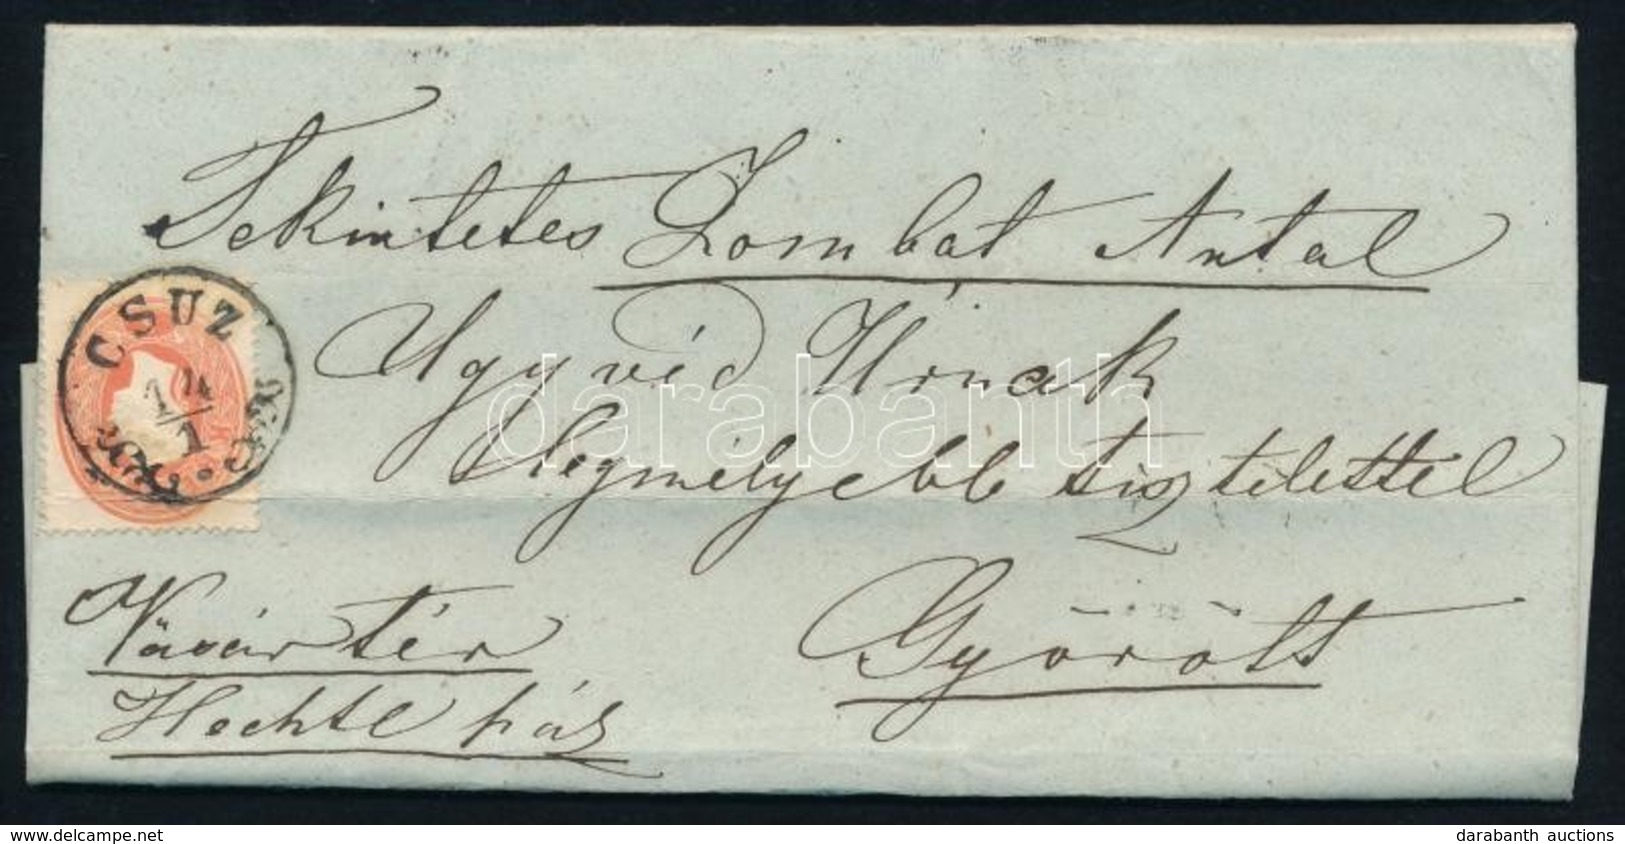 Tekintetes Lombat Antal
Ügyvéd Úrnak
legmélyebb tisztelettel
Győrött
Vásár tér
Hechtl ház
CSUZ
14/1
darabanth
www.delcampe.net
darabanth auctions